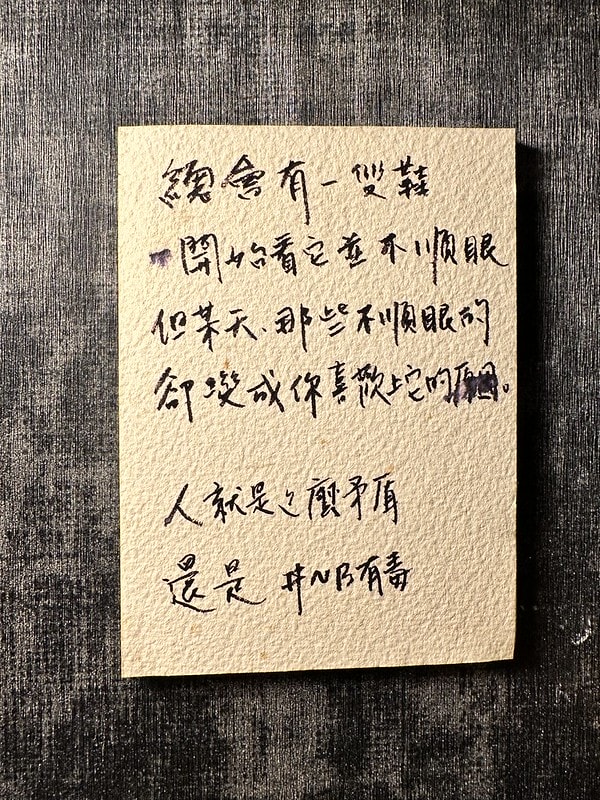 總會有一雙鞋
一開始看它並不順眼
但某天、那些不順眼的
卻變成你喜歡上它的原因。
人就是這麼矛盾
還是 #NB有毒